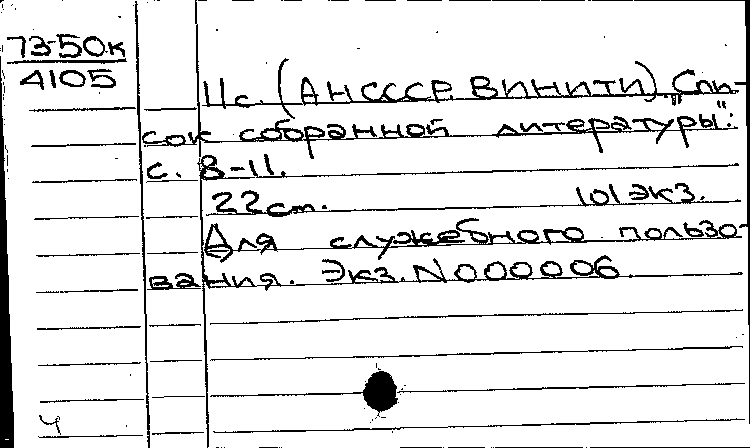 73-50к
4105
11с. (АН СССР. ВИНИТИ). "Спи-
сок собранной литературы":
с. 8-11.
22см. 101 экз.
Для служебного пользо-
вания. Экз. N 000006.
4